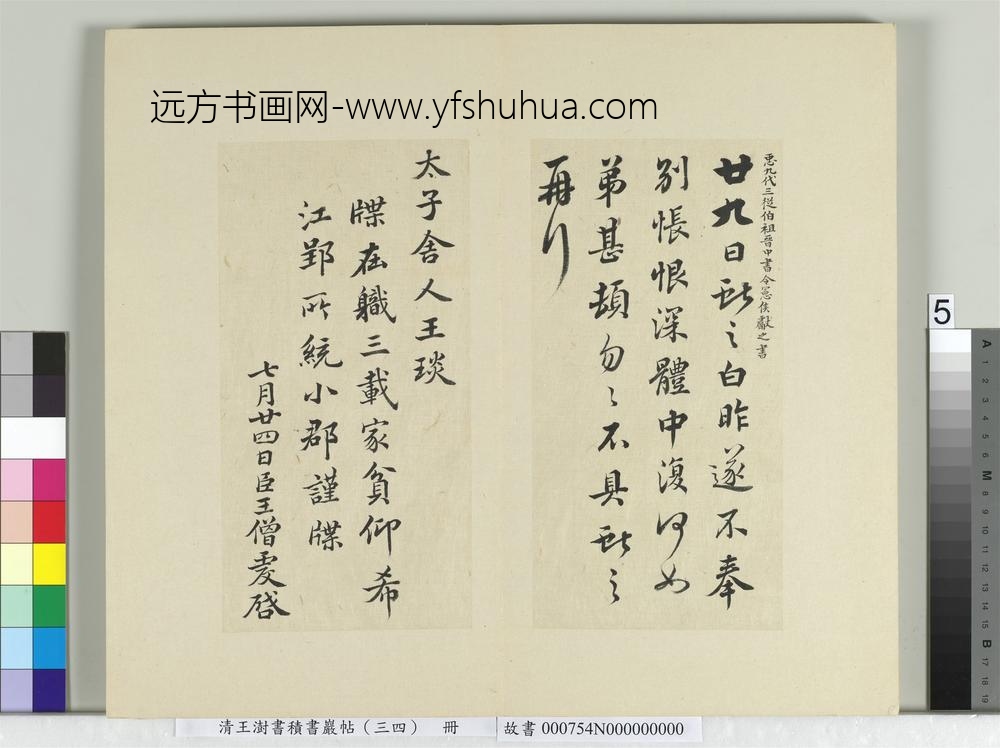 远方书画网-www.yfshuhua.com
悳九代三從伯祖晉中書令憲侯獻之書
廿九日獻之白昨遂不奉
別悵恨深體中復何如
弟甚頓勿勿不具獻之
再行
太子舍人王琰
牒在職三載家貧仰希
江郢所統小郡謹牒
七月廿四日臣王僧虔啓
5
A 1 2 3 4 5 6 M 8 9 10 11 12 13 14 15 B 17 18 19
清王澍書積書巖帖（三四） 冊
故書 000754N000000000